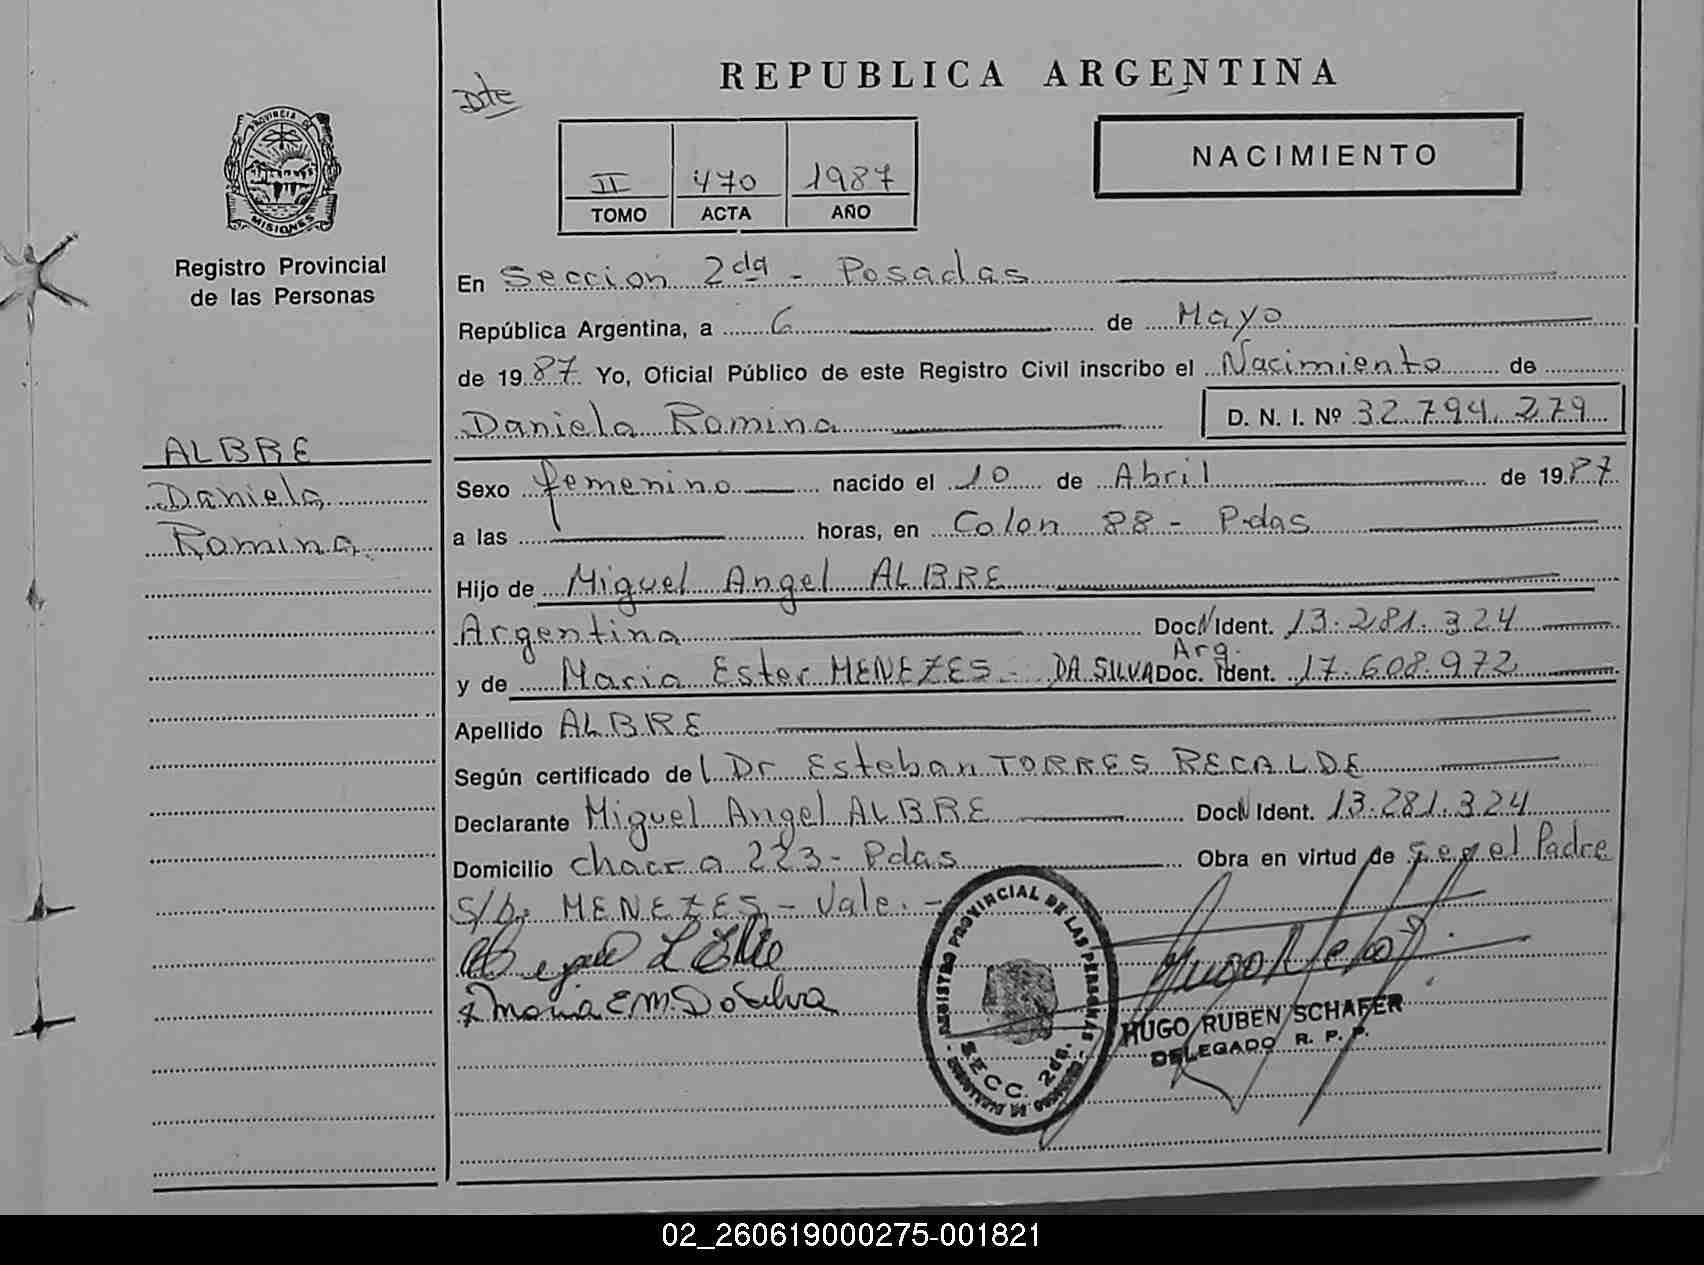 REPUBLICA ARGENTINA
Dte
PROVINCIA DE
MISIONES
Registro Provincial
de las Personas
II 470 1987
TOMO ACTA AÑO
NACIMIENTO
En Seccion 2da - Posadas
República Argentina, a 6 de Mayo
de 1987. Yo, Oficial Público de este Registro Civil inscribo el Nacimiento de
Daniela Romina D. N. I. Nº 32.794.279
ALBRE
Daniela
Romina
Sexo femenino nacido el 10 de Abril de 1987
a las horas, en Colon 88 - Pdas
Hijo de Miguel Angel ALBRE
Argentina DocN Ident. 13.281.324
Arg.
y de Maria Ester MENEZES - DA SILVA Doc. Ident. 17.608.972
Apellido ALBRE
Según certificado del Dr Esteban TORRES RECALDE
Declarante Miguel Angel ALBRE DocN Ident. 13.281.324
Domicilio chacra 223 - Pdas Obra en virtud de ser el Padre
S/b: MENEZES - Vale. -
Maria E M. Da Silva
REGISTRO PROVINCIAL DE LAS PERSONAS
SECC. 2da.
HUGO RUBEN SCHAFER
DELEGADO R. P. P.
02_260619000275-001821